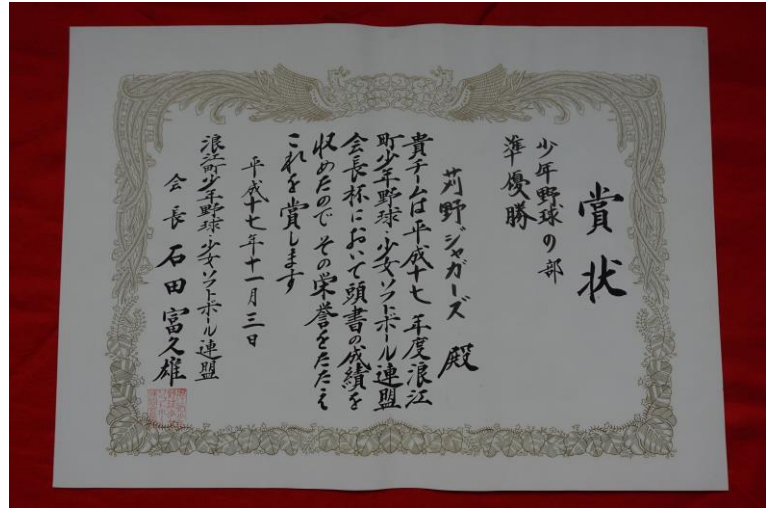 賞状
少年野球の部
準優勝
苅野ジャガーズ 殿
貴チームは平成十七年度浪江
町少年野球・少女ソフトボール連盟
会長杯において頭書の成績を
収めたので その栄誉をたたえ
これを賞します
平成十七年十一月三日
浪江町少年野球・少女ソフトボール連盟
会長 石田富久雄